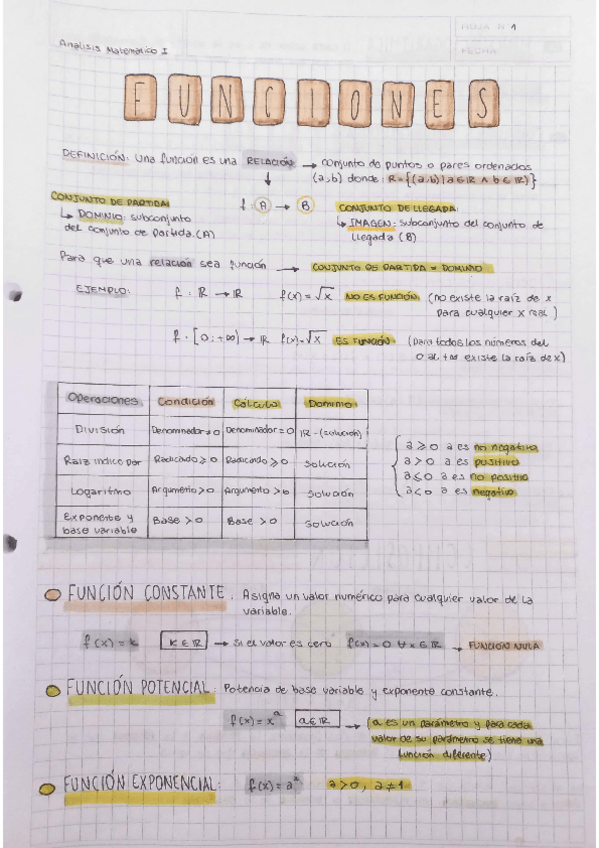 HOJA N 1
FECHA
Analisis Matematico I
FUNCIONES
DEFINICIÓN: una función es una RELACIÓN → conjunto de puntos o pares ordenados
(a,b) donde: R={(a,b)|a∈R ∧ b∈R)}
CONJUNTO DE PARTIDA:
↳ DOMINIO: subconjunto
del conjunto de partida.(A)
f: A → B
CONJUNTO DE LLEGADA:
↳ IMAGEN: subconjunto del conjunto de
llegada (B)
Para que una relación sea función → CONJUNTO DE PARTIDA = DOMINIO
EJEMPLO: f: R → R f(x) = √x NO ES FUNCIÓN. (no existe la raíz de x
para cualquier x real)
f: [0; +∞) → R f(x)=√x ES FUNCIÓN. (para todos los números del
0 al +∞ existe la raíz de x)
Operaciones Condición Cálculo Dominio
División Denominador ≠ 0 Denominador = 0 R - (solución)
Raíz índice par Radicando ⩾ 0 Radicando ⩾ 0 solución
Logaritmo Argumento > 0 Argumento > 0 solución
Exponente y
base variable Base > 0 Base > 0 solución
a ⩾ 0 a es no negativo
a > 0 a es positivo
a ⩽ 0 a es no positivo
a < 0 a es negativo
FUNCIÓN CONSTANTE. Asigna un valor numérico para cualquier valor de la
variable.
f(x) = k k∈R → si el valor es cero f(x)=0 ∀ x∈R → FUNCIÓN NULA
FUNCIÓN POTENCIAL: Potencia de base variable y exponente constante.
f(x) = xᵃ a∈R → (a es un parámetro y para cada
valor de su parámetro se tiene una
función diferente)
FUNCIÓN EXPONENCIAL: f(x) = aˣ a>0, a≠1